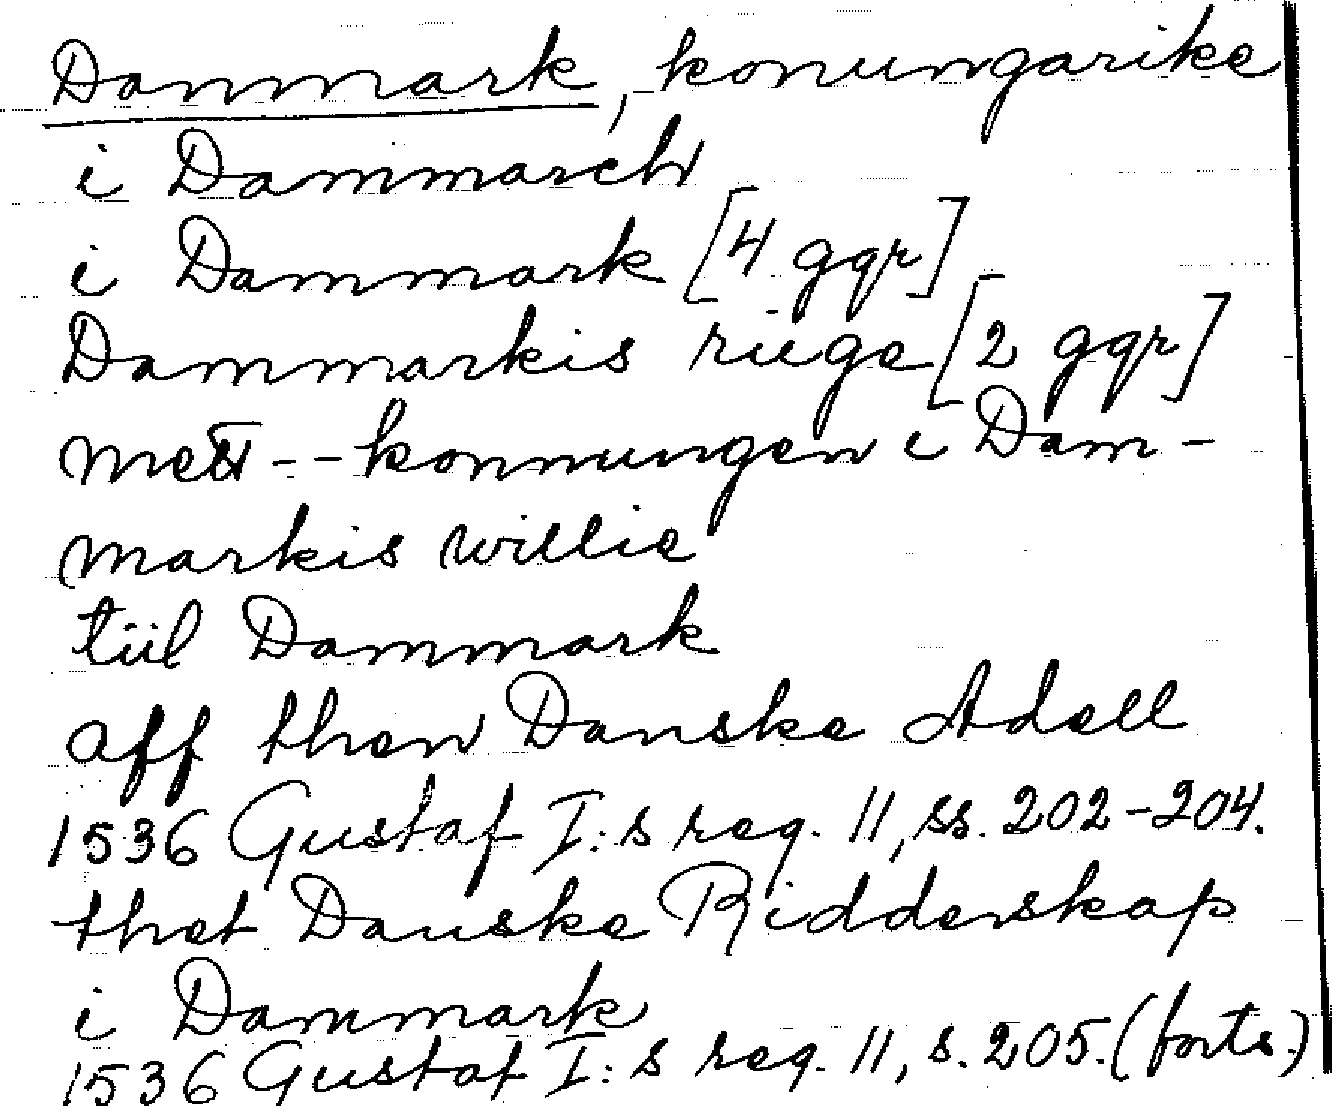 Danmark, konungarike
i Dammarch
i Dammark [4 ggr]
Dammarkis rüge [2 ggr]
mett -- konnungen i Dam-
markis willie
tiil Dammark
aff then Danske Adell
1536 Gustaf I:s reg. 11, ss. 202-204.
thet Danske Ridderskap
i Dammark
1536 Gustaf I:s reg. 11, s. 205. (forts.)